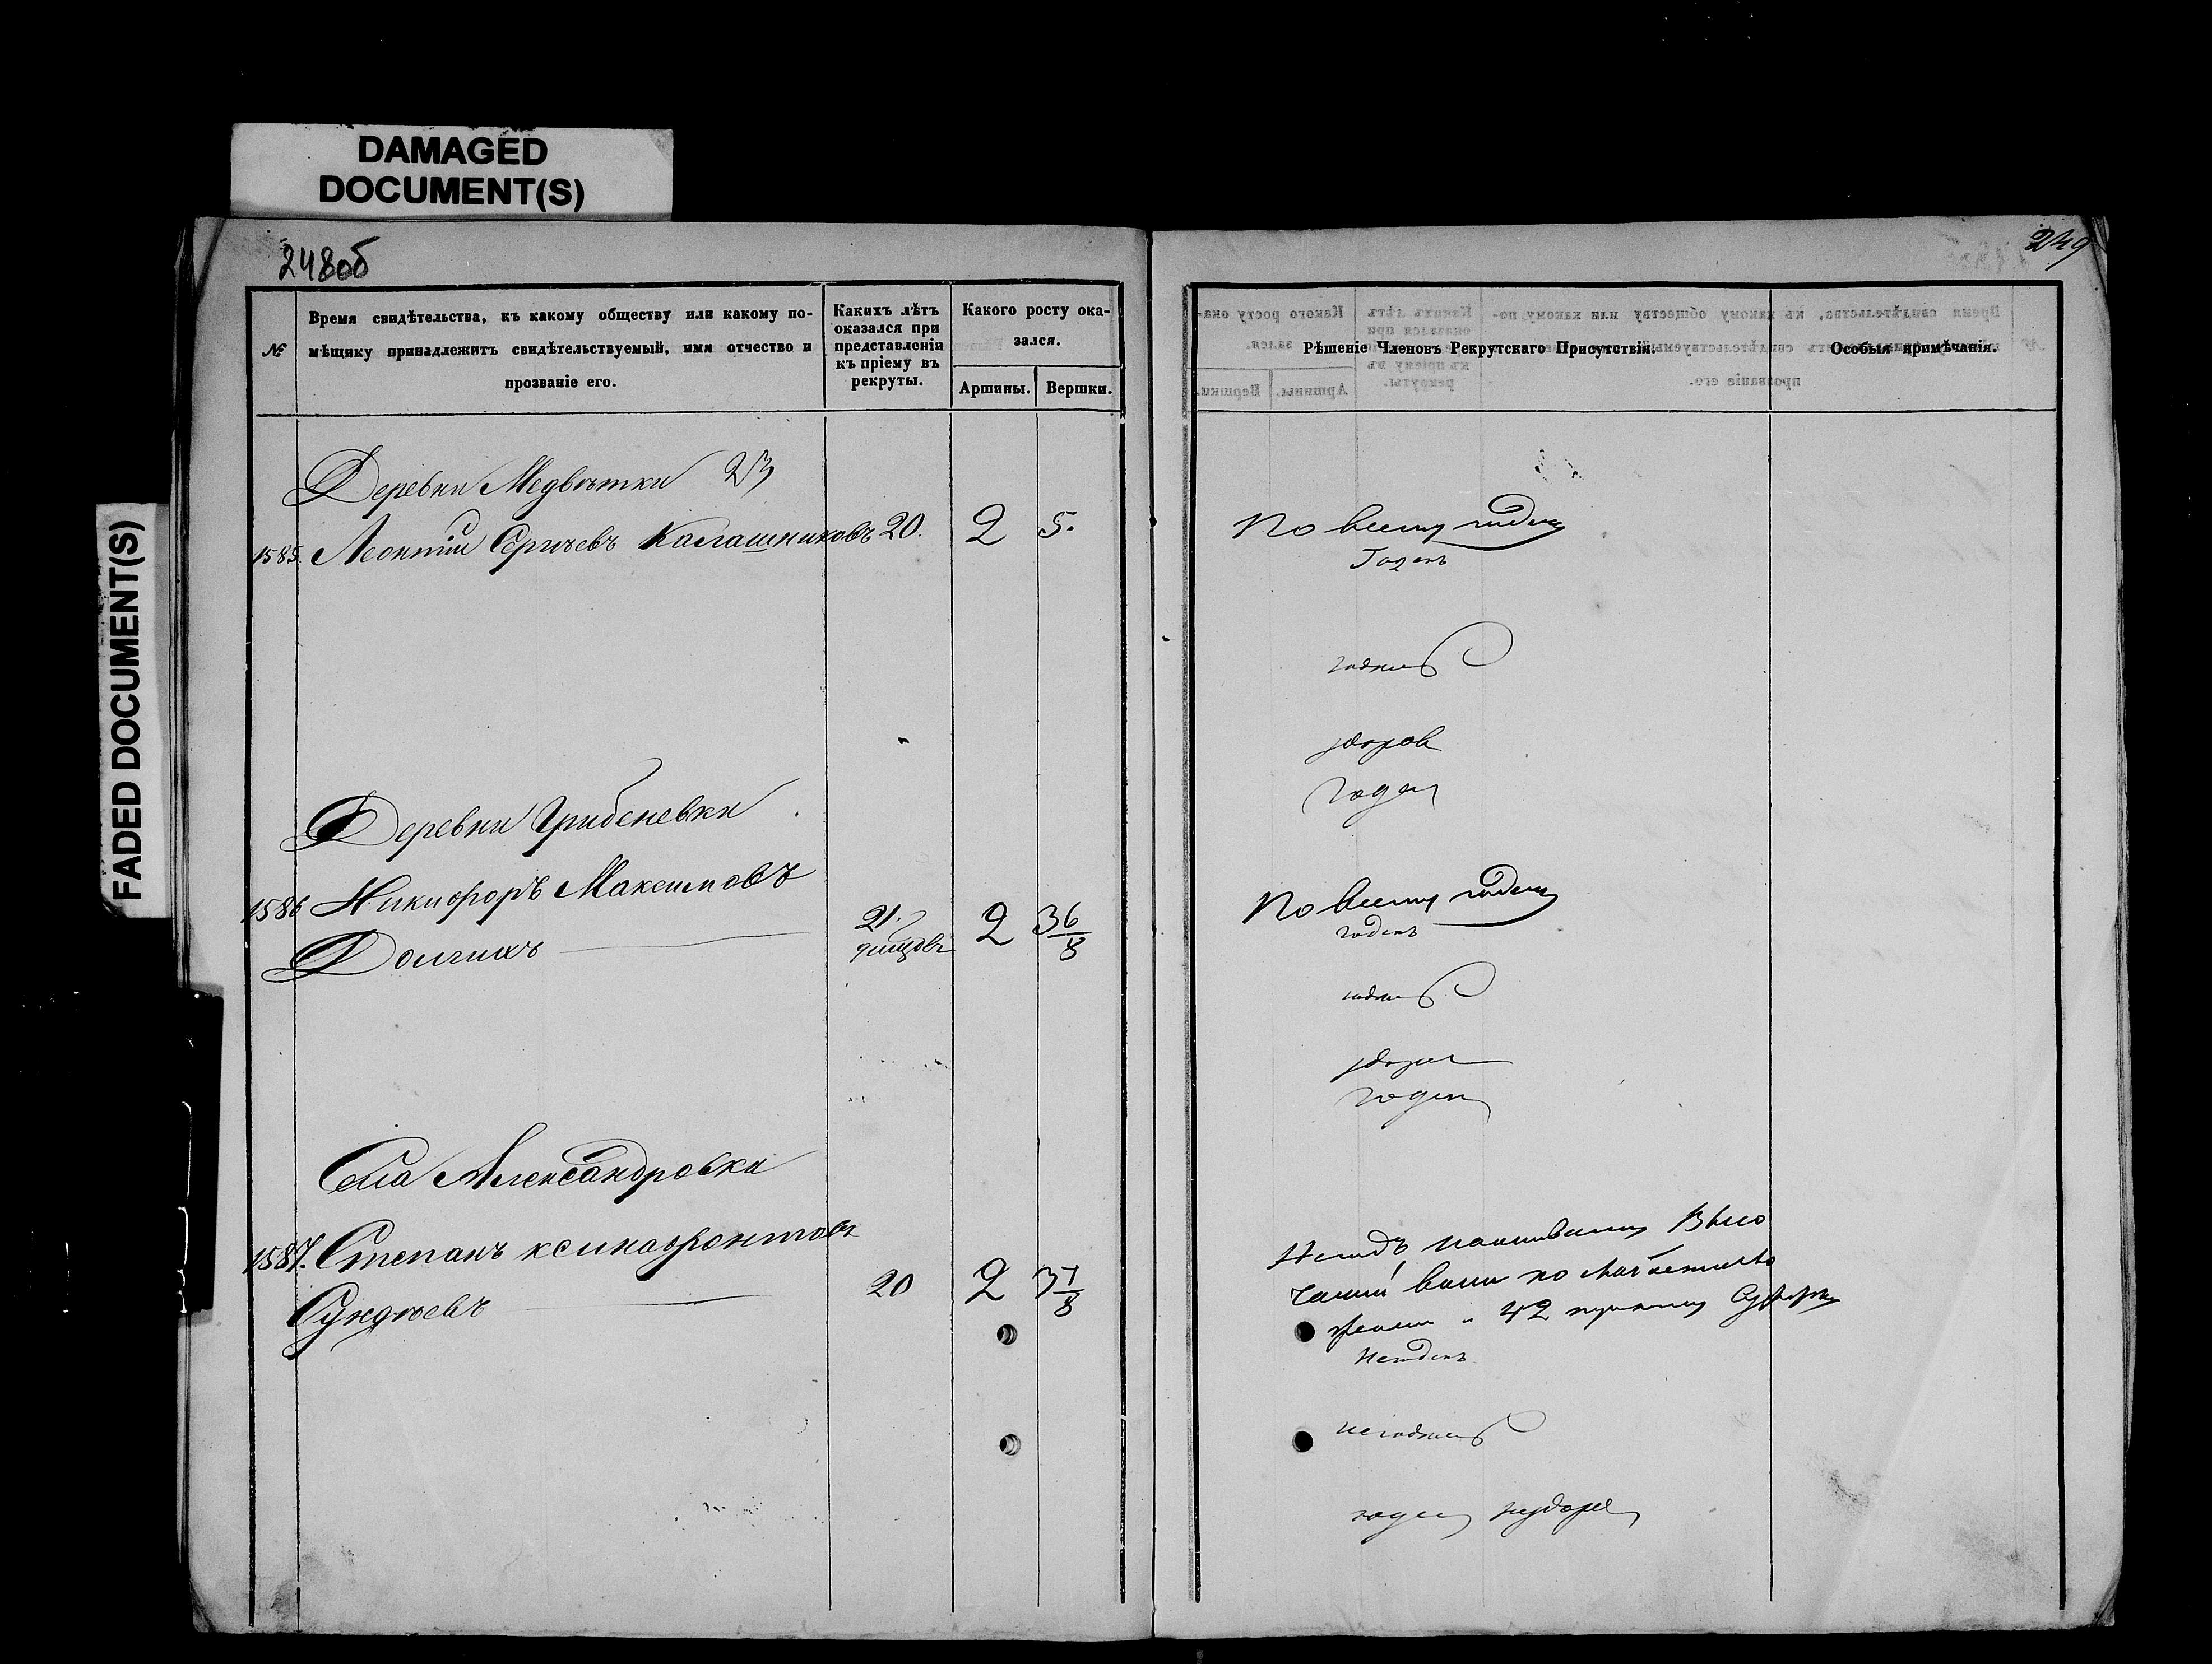 DAMAGED
DOCUMENT(S)
FADED DOCUMENT(S)
248об
№
Время свидѣтельства, къ какому обществу или какому по-
мѣщику принадлежитъ свидѣтельствуемый, имя отчество и
прозваніе его.
Какихъ лѣтъ
оказался при
представленіи
къ пріему въ
рекруты.
Какого росту ока-
зался.
Аршины.
Вершки.
Деревни Медвѣтки 23
1585. Леонтій Сергѣевъ Калашниковъ 20. 2 5.
Деревни Грибеневки
1586 Никифоръ Максимовъ
Долгихъ
21. 2 3 6/8
Села Александровки
1587. Степанъ Ксинофонтовъ
Сундѣевъ
20 2 3 7/8
249
Рѣшеніе Членовъ Рекрутскаго Присутствія.
Особыя примѣчанія.
По всему годенъ
Годенъ
годенъ
здоров
годен
По всему годенъ
годенъ
годенъ
годен
42 пункту
Негоденъ
негоденъ